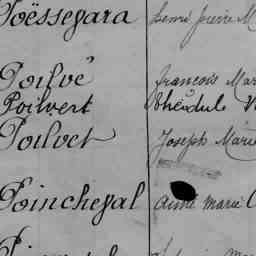 Poëssegara René Pierre M
Poilvé François Mar
Poilvert Théodule V
Poilvet Joseph Marie
Poincheval Aimé Marie